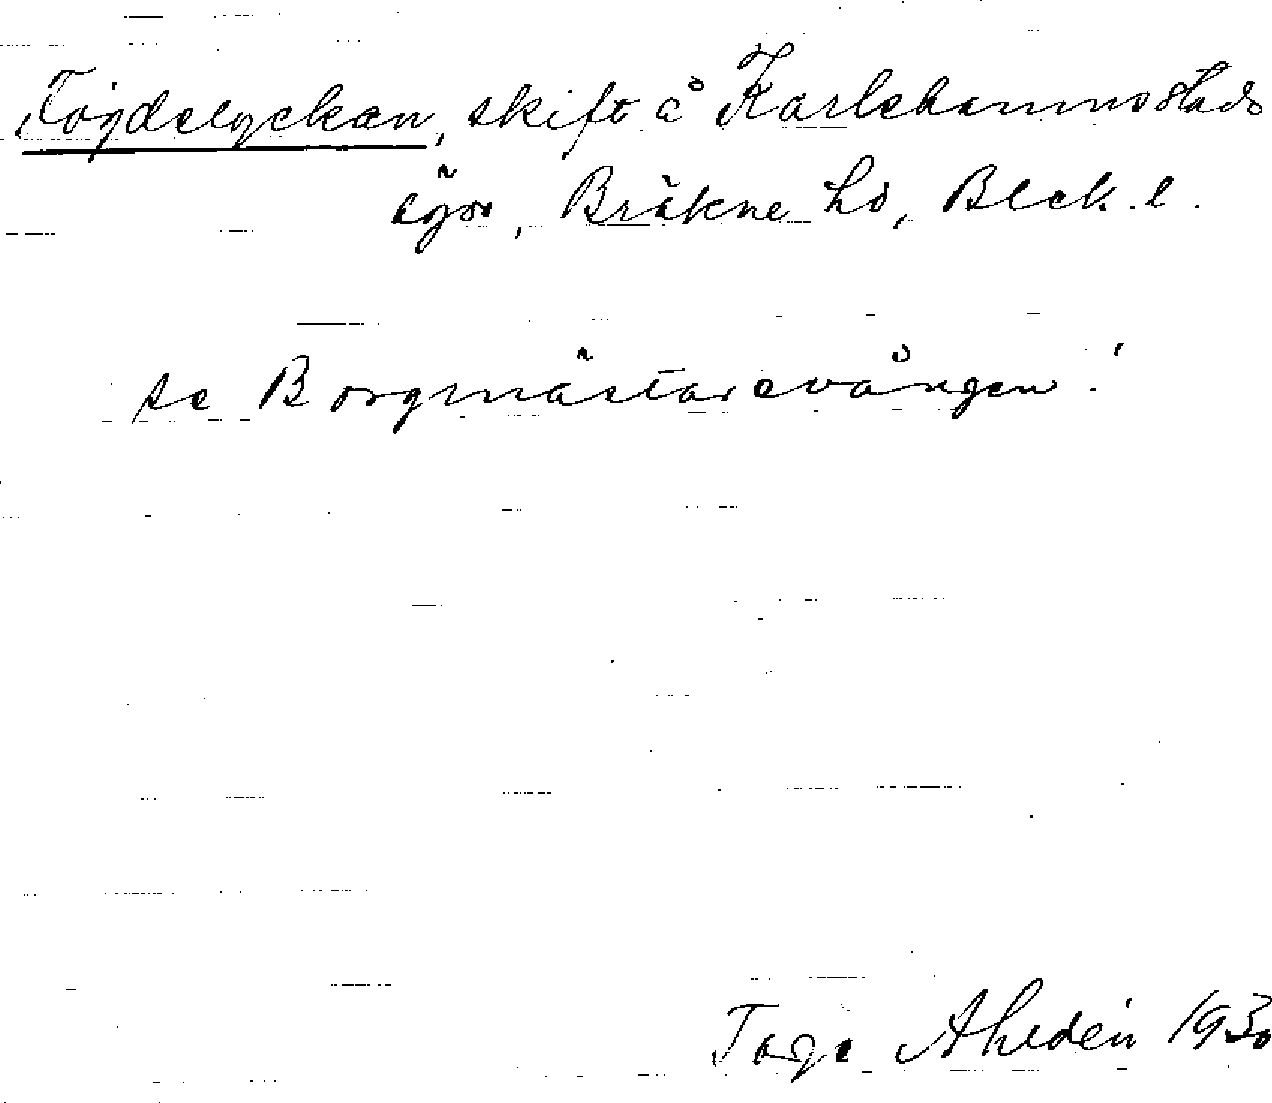 Fogdelyckan, skift å Karlshamns stads
ägor, Bräkne hd, Blek. l.
se Borgmästarevången!
Tage Ahldén 1930